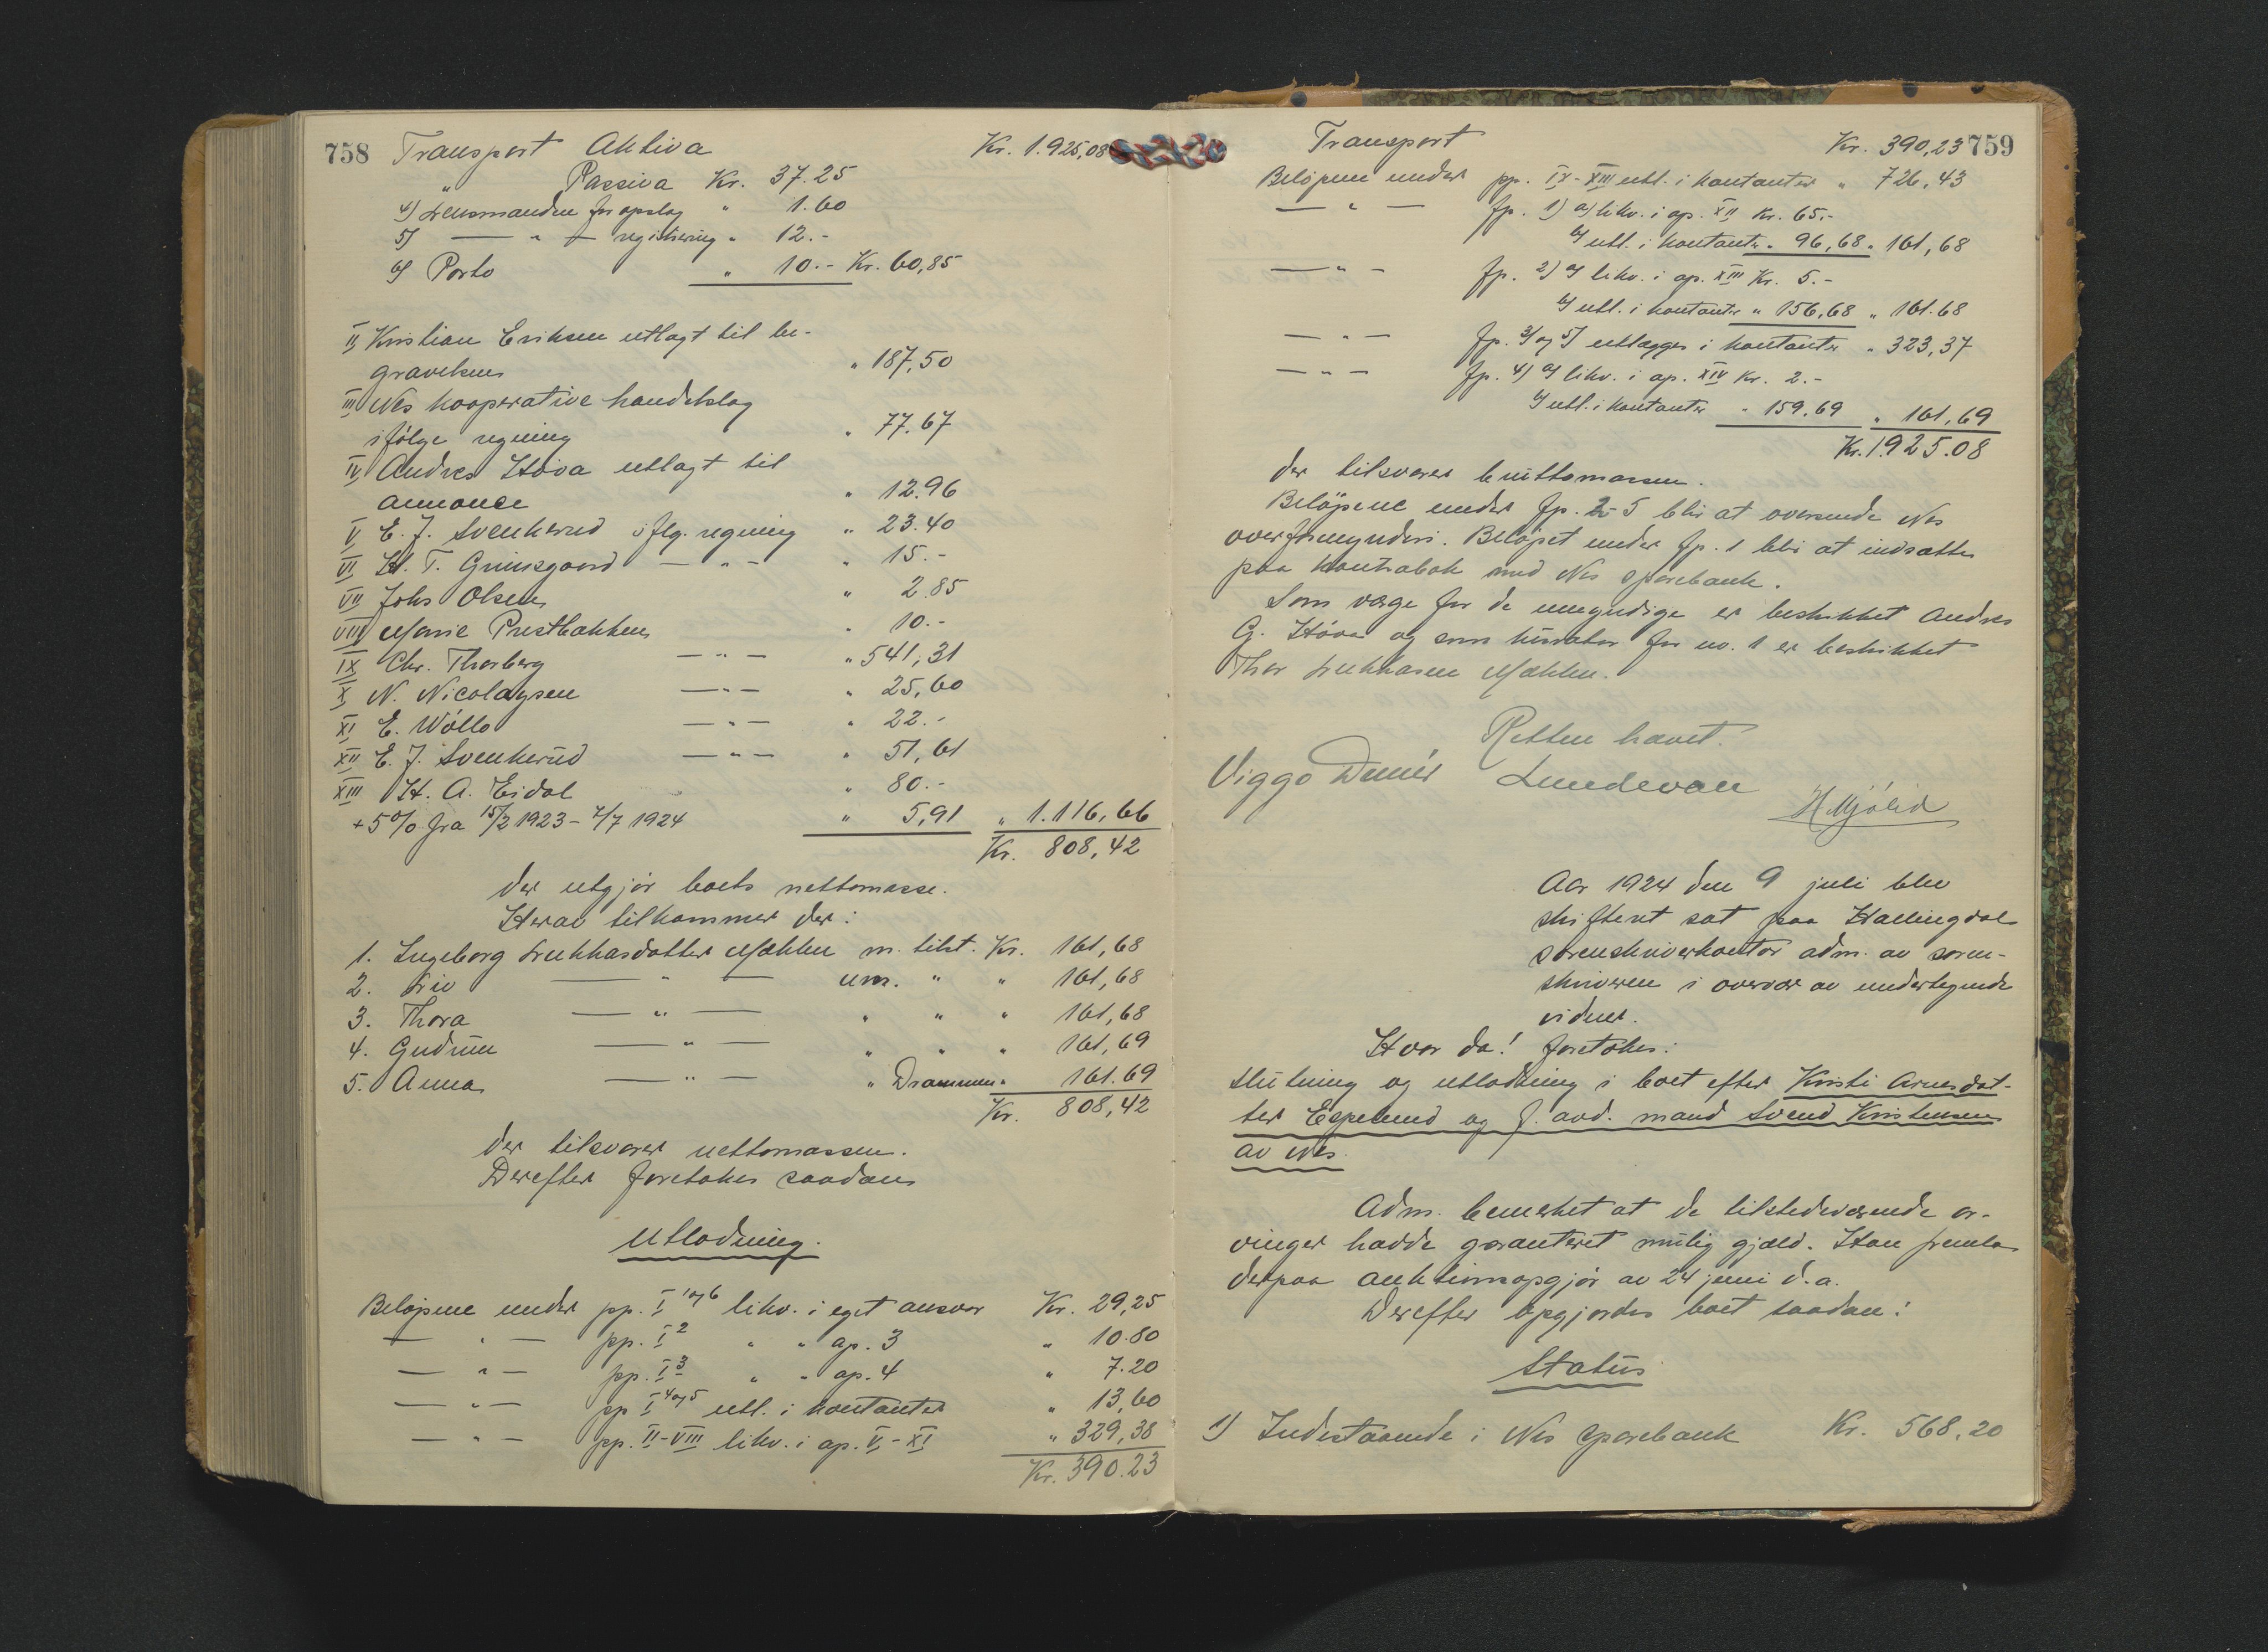 758 Transport Aktiva Kr. 1.925,08
" Passiva Kr. 37.25
4) Lensmanden for opslag " 1.60
5) — " — registrering " 12.-
6) Porto " 10.- Kr. 60,85
II Kristian Eriksen utlagt til be-
gravelsen " 187,50
III Nes kooperative handelslag
ifølge regning " 77.67
IV Andres Höva utlagt til
annonce " 12.96
V E. J. Svenkerud iflg. regning " 23.40
VI H. T. Grimsgaard — " — " 15.-
VII Johs Olsen " 2.85
VIII Marie Prestbakken " 10.-
IX Chr. Thorberg — " — " 541,31
X N. Nicolaysen — " — " 25,60
XI E. Wöllo — " — " 22.-
XII E. J. Svenkerud — " — " 51,61
XIII H. A. Eidal " 80.-
+ 5% fra 15/2 1923 - 4/7 1924 " 5,91 " 1.116,66
Kr. 808,42
der utgjør boets nettomasse.
Herav tilkommer der:
1. Ingeborg Lukkasdatter Mækken m. tilst. Kr. 161,68
2. Liv — " — um. " " 161,68
3. Thora — " — " " " 161,68
4. Gudrun — " — " " " 161,69
5. Anna — " — " Drammen " 161.69
Kr. 808,42
der tilsvarer nettomassen.
Derefter foretokes saadan
Utlodning.
Beløpene under pp. I 1 og 6 likv. i eget ansvar Kr. 29,25
— " — pp. I 2 " " ap. 3 " 10.80
— " — pp. I 3 " " ap. 4 " 7.20
— " — pp I 4 og 5 utl. i kontanter " 13,60
— " — pp. II-VIII likv. i ap. V - XI " 329,38
Kr. 390.23
Transport Kr. 390,23 759
Beløpene under pp. IX-XIII utl. i kontanter " 726,43
— " — fp. 1) a) likv. i ap. XII Kr. 65.-
b) utl. i kontanter " 96,68 " 161,68
— " — fp. 2) a) likv. i ap. XIII Kr. 5.-
b) utl. i kontanter " 156,68 " 161.68
— " — fp. 3) og 5) utlægges i kontanter " 323,37
— " — fp. 4) a) likv. i ap. XIV Kr. 2.-
b) utl. i kontanter " 159.69 " 161,69
Kr. 1925.08
der tilsvarer bruttomassen.
Beløpene under fp. 2-5 blir at oversende Nes
overformynderi. Beløpet under fp. 1 blir at indsættes
paa kontrabok med Nes sparebank.
Som værge for de umyndige er beskikket Andres
G. Höva og som kurator for no. 1 er beskikket
Thor Lukkasen Mækken.
Retten hævet.
Viggo Lundevall
H Mjölid
Aar 1924 den 9 juli blev
skifteret sat paa Hallingdal
sorenskriverkontor adm. av soren-
skriveren i overvær av undertegnede
vidner.
Hvor da! foretokes:
Slutning og utlodning i boet efter Kristi Arnesdat-
ter Espelund og f. avd. mand Svend Kristensen
av Nes.
Adm. bemerket at de tilstedeværende ar-
vinger hadde garanteret mulig gjæld. Han fremla
derpaa auktionsopgjør av 24 juni d.a.
Derefter opgjordes boet saadan:
Status
1) Indestaaende i Nes sparebank Kr. 568.20